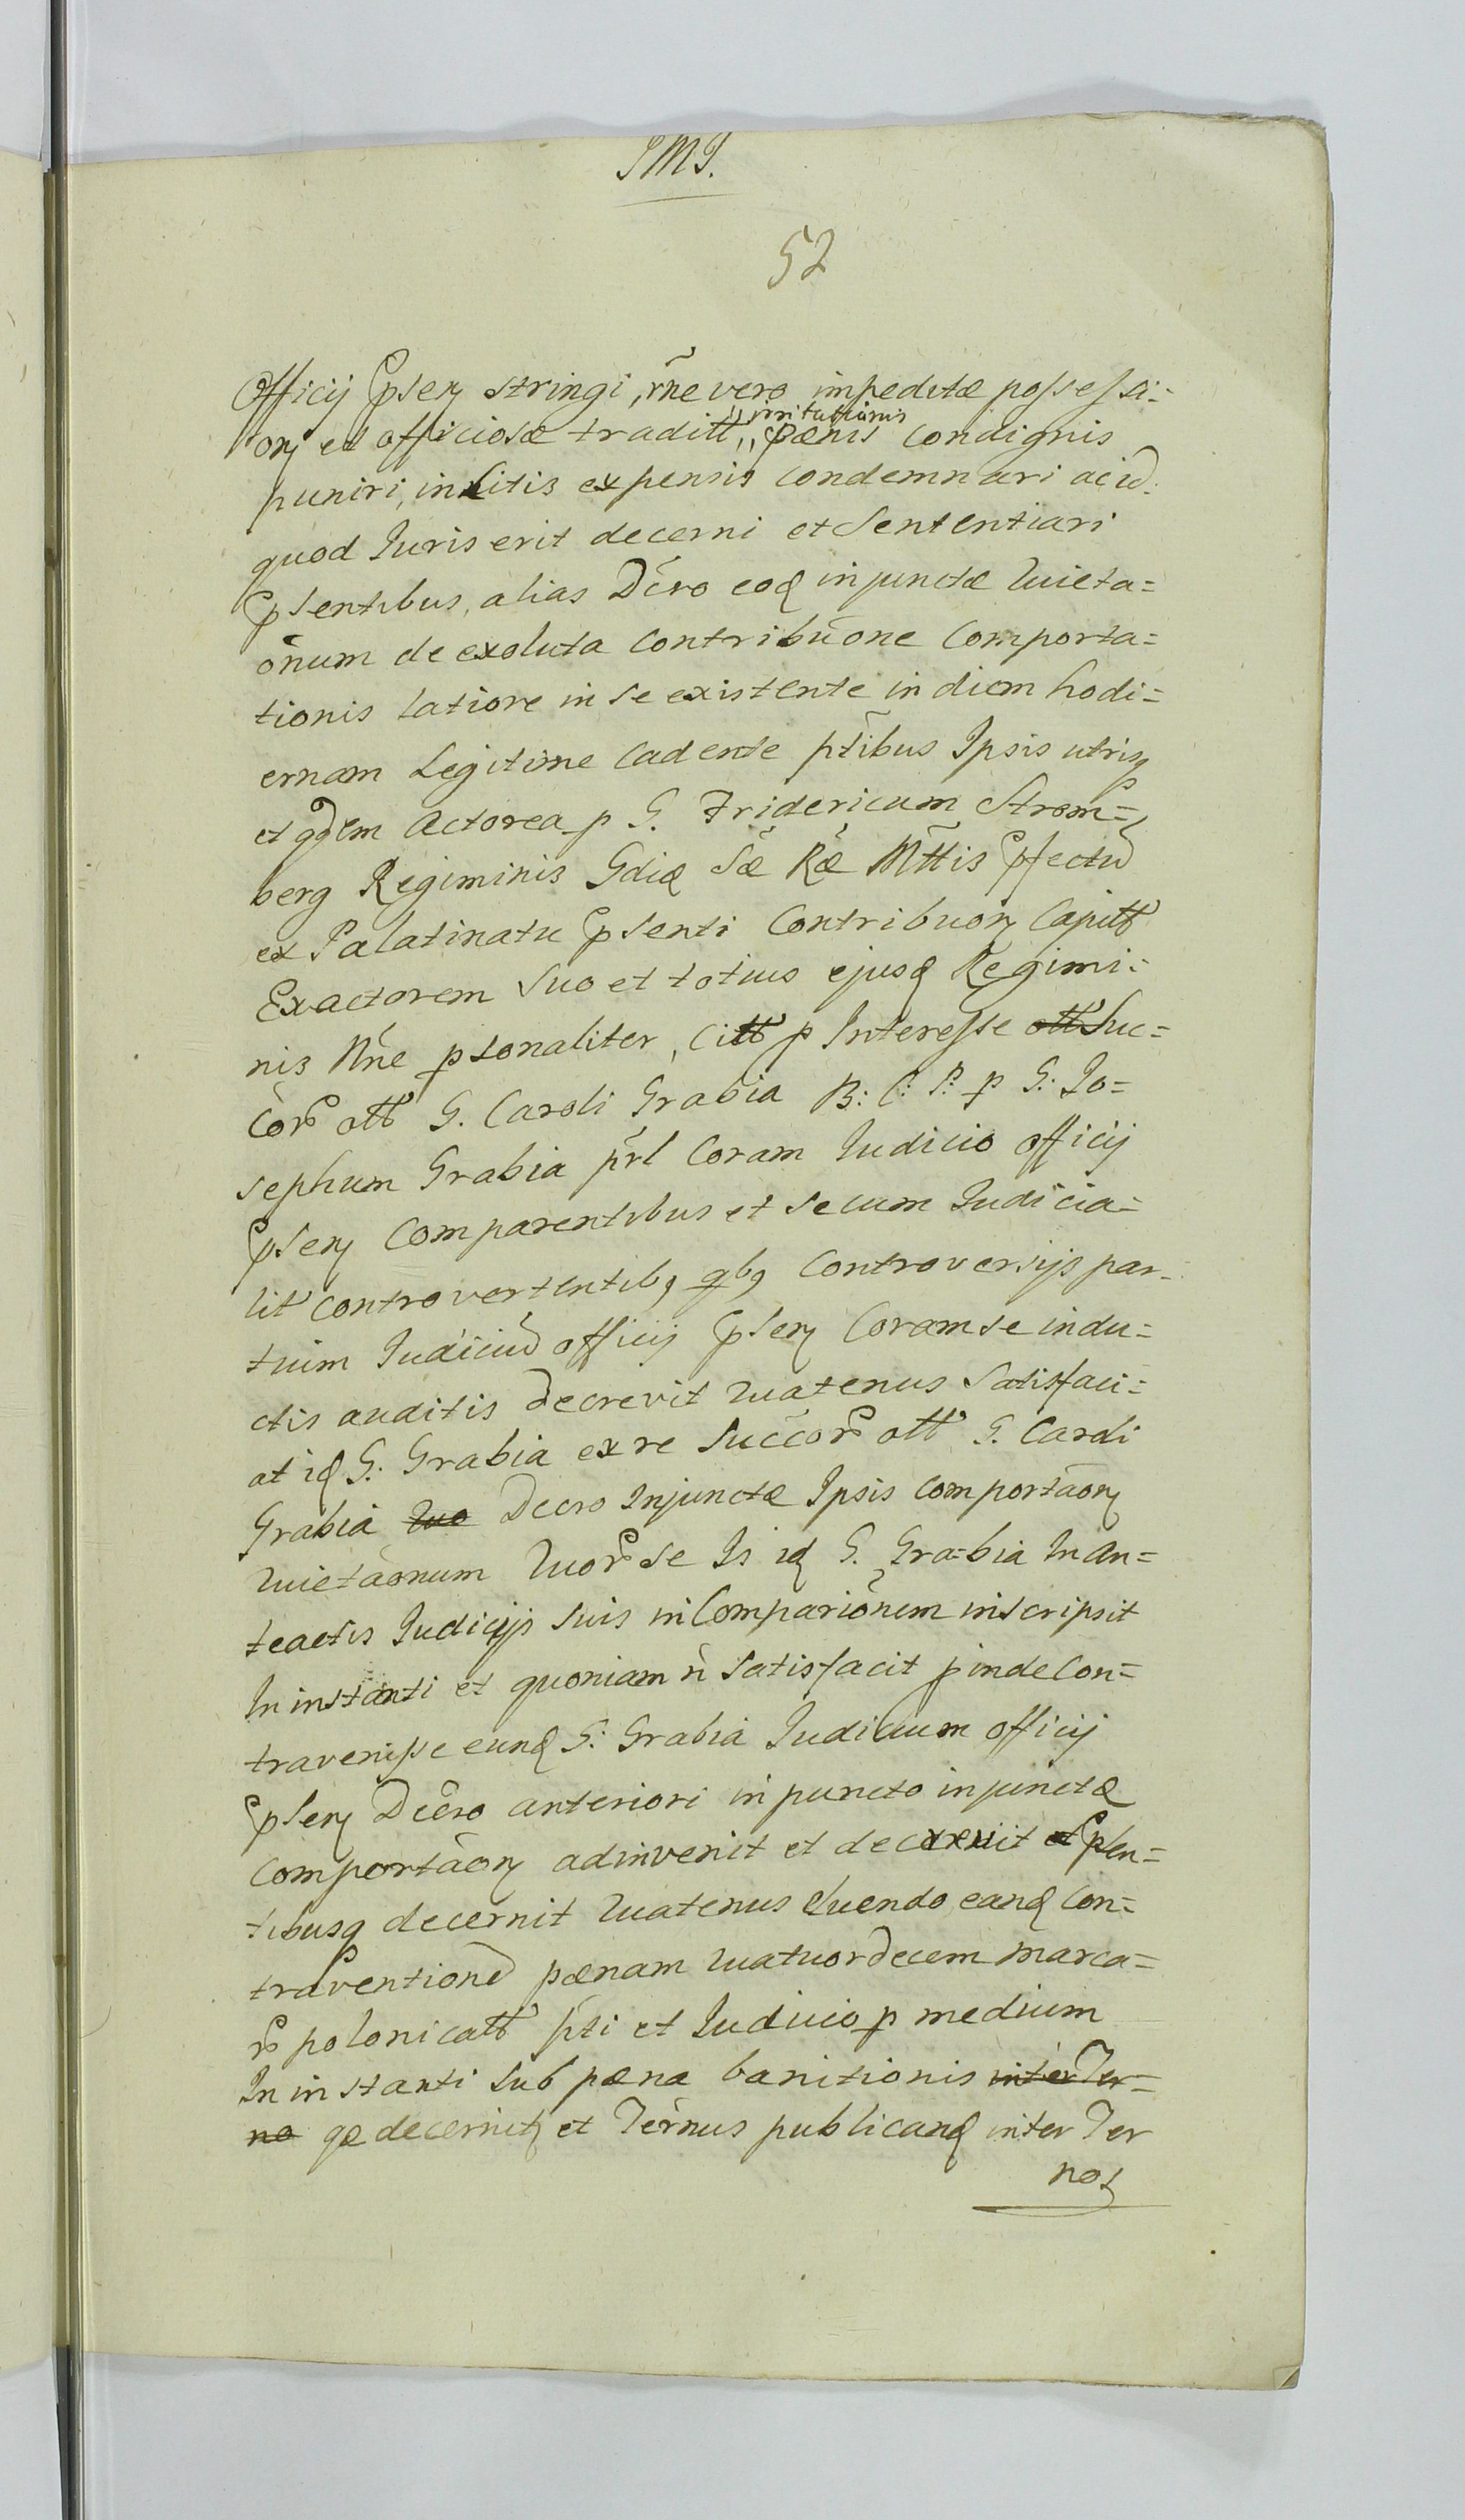 JMJ.
52
Officij Pnsen stringi, rñe vero impeditæ possessi=
"irritationis
oñ et officiosæ traditt" pænis condignis
puniri, in litis expensis condemnari acid
quod Iuris erit decerni et sententiari
Psentibus, alias Dcro eoq injunctæ Quieta=
onum de exoluta contribuõne comporta=
tionis latiore in se existente in diem hodi=
ernam Legitime cadente ptibus Ipsis utrisq
et qdem Actorea p G. Fridericum Strom=
berg Regiminis Gdiæ Sæ Ræ Mttis Pfectū
ex Palatinatu Psenti Contribuon Capitt
Exactorem suo et totius ejusq Regimi=
nis Nñe psonaliter, Citt p Interesse ott Suc=
cor ott G. Caroli Grabia B: C: P: p G: Jo=
sephum Grabia prl Coram Iudicio officij
Psen Comparentibus et secum Iudicia=
lit controvertentibq qbq Controversijs par=
tium Iudiciū officij Psen Coram se indu=
ctis auditis decrevit Quatenus Satisfaci=
at idq G: Grabia ex re Succor ott G. Caroli
Grabia Quo Decro Injunctæ Ipsis comportaon
Quietaonum Quor se Is idq G. Gra=bia In an=
teactis Iudicijs suis in Comparionem inscripsit
In instanti et quoniam ñ satisfacit pinde Con=
travenisse eunq G: Grabia Iudicium officij
Psen Dcro anteriori in puncto injunctæ
comportaon adinvenit et decrevit et Psen=
tibusq decernit Quatenus luendo eanq Con=
traventionē pænam Quatuordecem marca=
r polonicatt pti et Iudicio p medium
In instanti sub pæna banitionis inter Ter=
no qæ decernit et Ternus publicanq inter Ter
nos